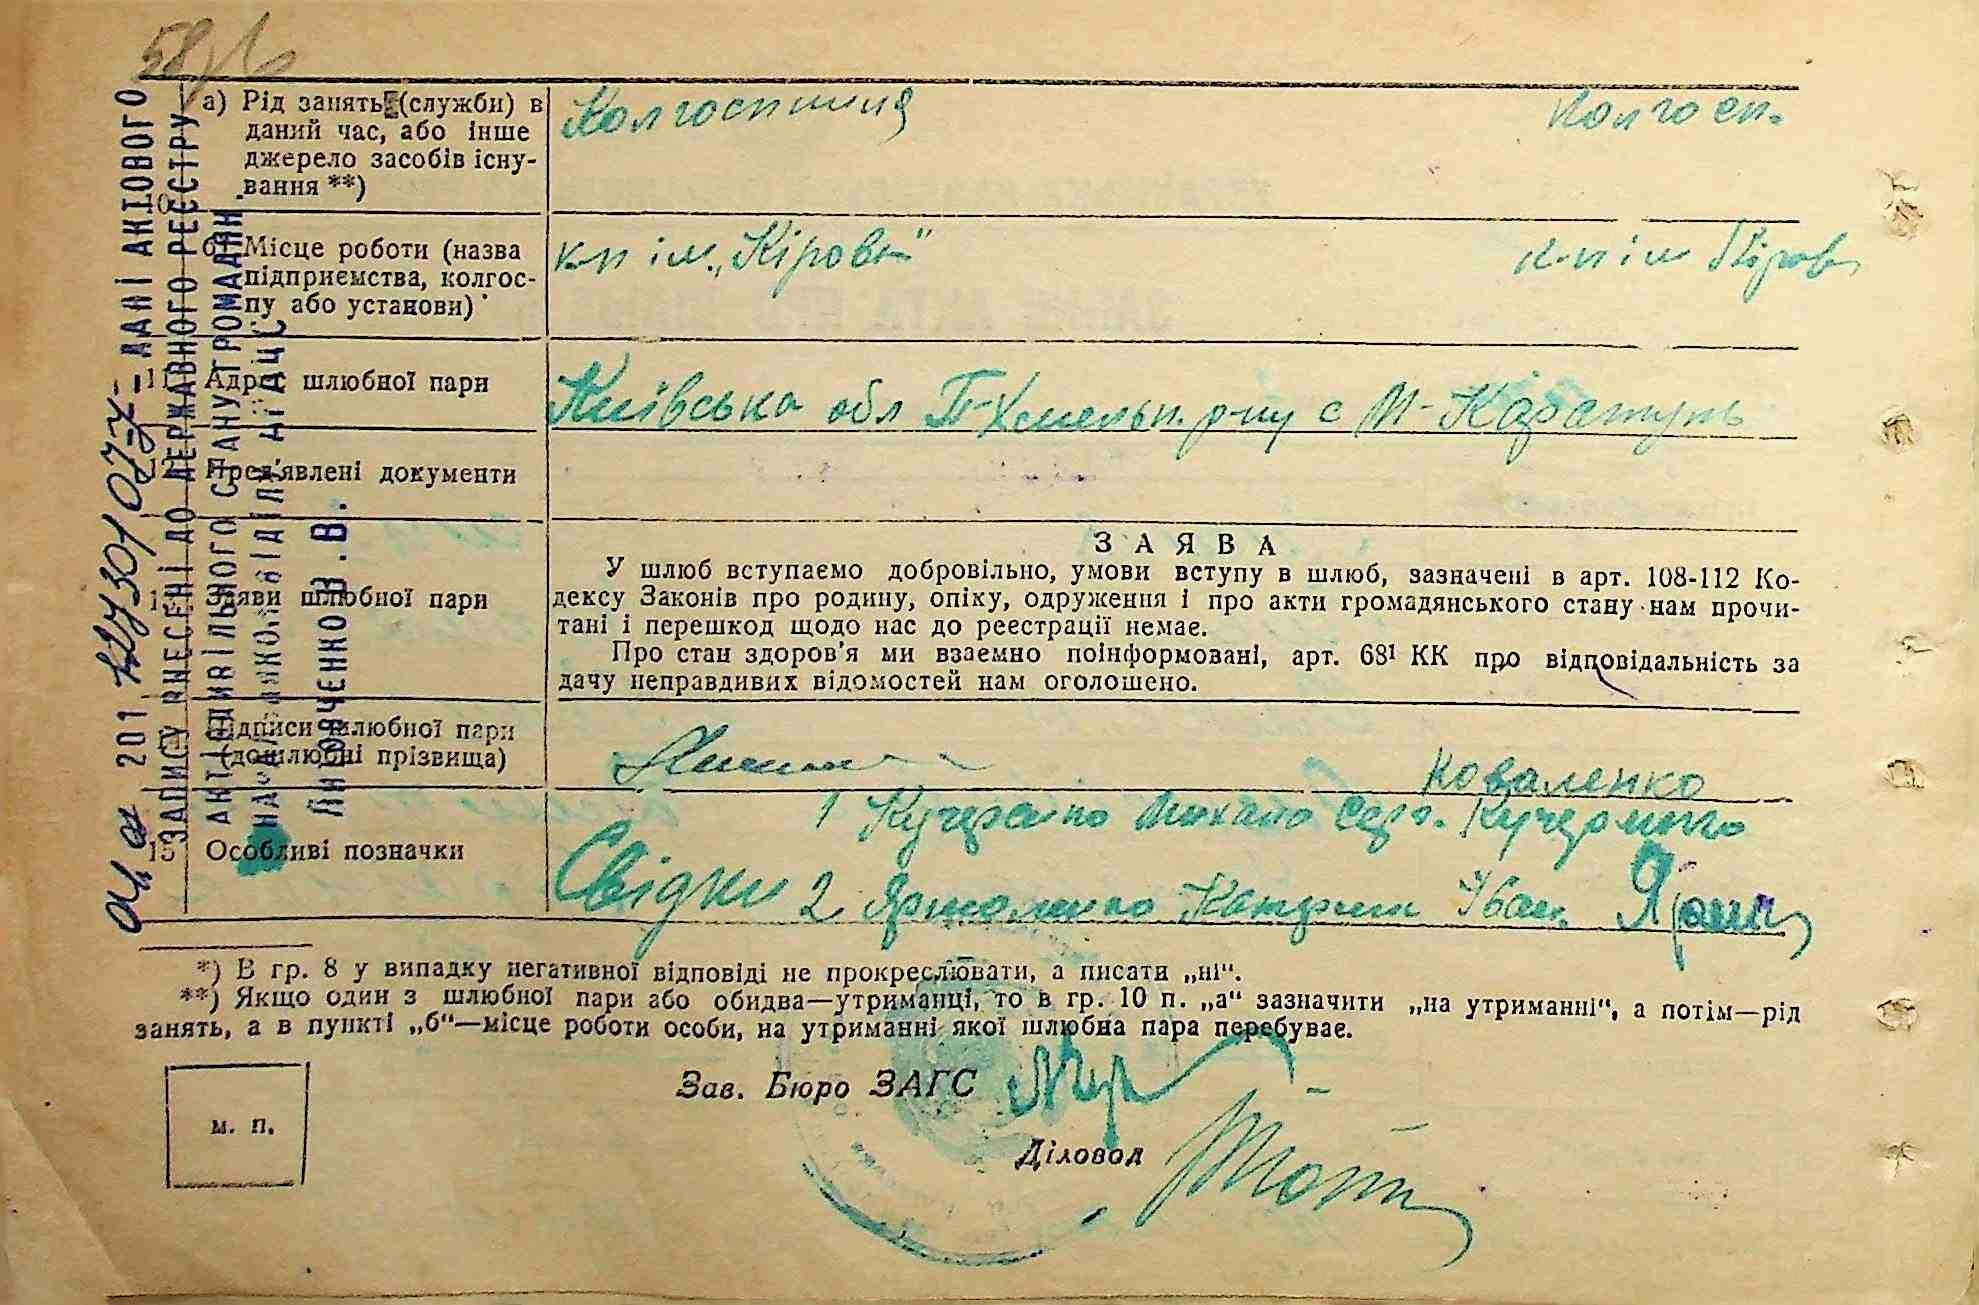 58
а) Рід занять (служби) в
даний час, або інше
джерело засобів існу-
вання **)
Колгоспниця
Колгосп.
б) Місце роботи (назва
підприємства, колгос-
пу або установи)
кп ім. „Кірова“
к-п ім Кіров
11 Адрес шлюбної пари
Київська обл П-Хмельн. р-ну с М-Каратуль
12 Пред'явлені документи
13 Заяви шлюбної пари
ЗАЯВА
У шлюб вступаємо добровільно, умови вступу в шлюб, зазначені в арт. 108-112 Ко-
дексу Законів про родину, опіку, одруження і про акти громадянського стану нам прочи-
тані і перешкод щодо нас до реєстрації немає.
Про стан здоров'я ми взаємно поінформовані, арт. 68¹ КК про відповідальність за
дачу неправдивих відомостей нам оголошено.
Підписи шлюбної пари
(дошлюбні прізвища)
Коваленко
15 Особливі позначки
1 Кучеренко Михайло Серг.
Свідки 2 Ярмоленко Катрина Іван.
*) В гр. 8 у випадку негативної відповіді не прокреслювати, а писати „ні“.
**) Якщо один з шлюбної пари або обидва—утриманці, то в гр. 10 п. „а“ зазначити „на утриманні“, а потім—рід
занять, а в пункті „б“—місце роботи особи, на утриманні якої шлюбна пара перебуває.
Зав. Бюро ЗАГС
Діловод
м. п.
201 ДАНІ АКТОВОГО
ЗАПИСУ ВНЕСЕНІ ДО ДЕРЖАВНОГО РЕЄСТРУ
АКТІВ ЦИВІЛЬНОГО СТАНУ ГРОМАДЯН.
ВІДДІЛУ ДРАЦС
.В.